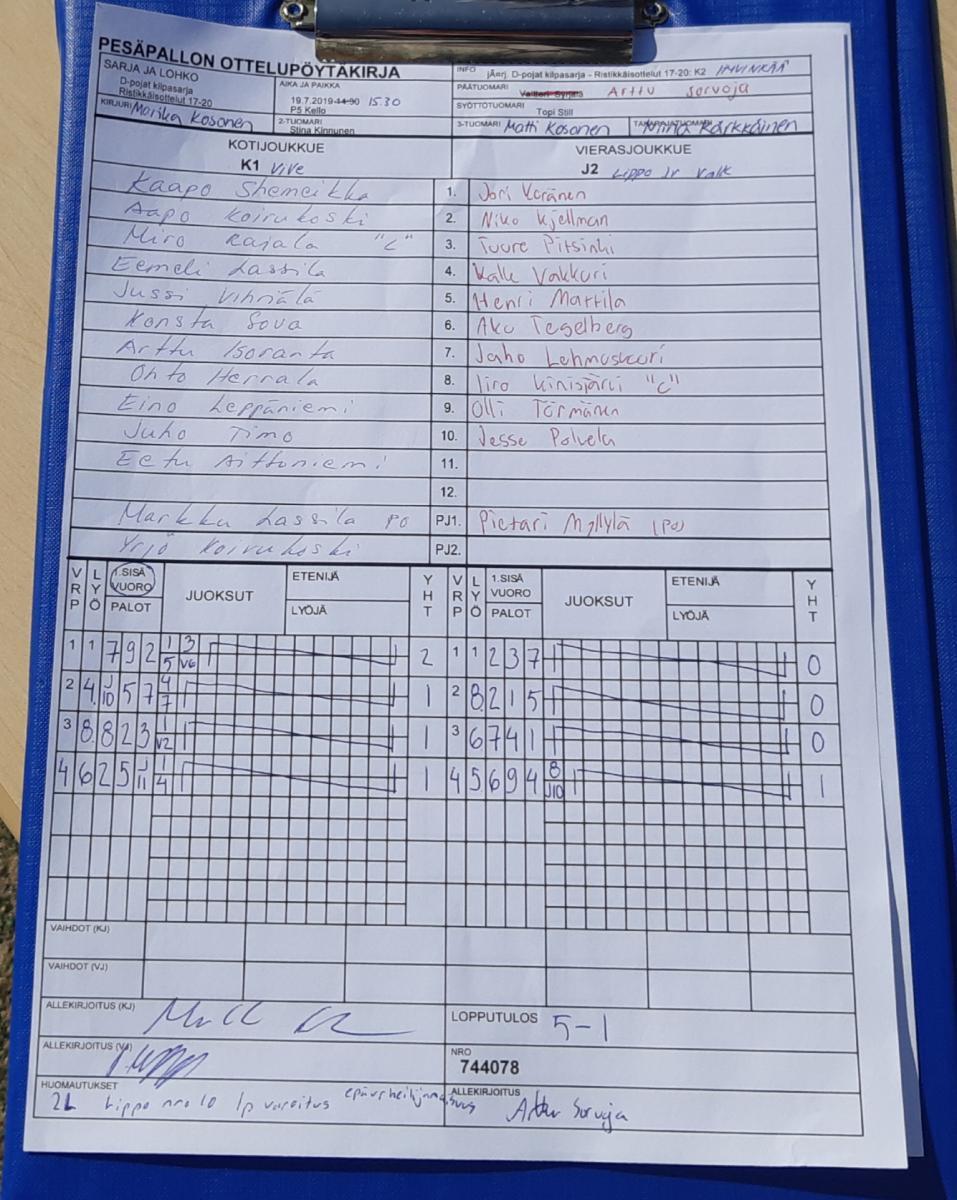 PESÄPALLON OTTELUPÖYTÄKIRJA
SARJA JA LOHKO
D-pojat kilpasarja
Ristikkäisottelut 17-20
AIKA JA PAIKKA
19.7.2019 14:30 15.30
P5 Kello
INFO jÄnrj. D-pojat kilpasarja - Ristikkäisottelut 17-20: K2 HYVINKÄÄ
PÄÄTUOMARI Valtteri Syrjälä Arttu Sorvoja
SYÖTTÖTUOMARI Topi Still
KIRJURI Marika Kosonen
2-TUOMARI
Stina Kinnunen
3-TUOMARI Matti Kosonen
TAKARAJATUOMARI Miina Kärkkäinen
KOTIJOUKKUE
K1 ViVe
VIERASJOUKKUE
J2 Lippo Jr Valk
Kaapo Shemeikka 1. Joni Karänen
Aapo Koivukoski 2. Niko Kjellman
Miro Rajala "C" 3. Tuure Pitsinki
Eemeli Lassila 4. Kalle Vakkuri
Jussi Vihriälä 5. Henri Mattila
Konsta Sova 6. Aku Tegelberg
Arttu Isoranta 7. Juho Lehmuskuri
Ohto Herrala 8. Iiro Kinisjärvi "C"
Eino Leppäniemi 9. Olli Törmänen
Juho Timo 10. Jesse Polvela
Eetu Aittoniemi 11.
12.
Markku Lassila PO PJ1. Pietari Myllylä (PO)
Yrjö Koivukoski PJ2.
VRP LYÖ 1.SISÄ VUORO PALOT JUOKSUT ETENIJÄ LYÖJÄ YHT VRP LYÖ 1.SISÄ VUORO PALOT JUOKSUT ETENIJÄ LYÖJÄ YHT
1 1 7 9 2 1 3 2 1 1 2 3 7 0
5 V6
2 4. J 5 7 4 1 2 8. 2 1 5 0
10 7
3 8. 8 2 3 1 1 3 6 7 4 1 0
V2
4 6 2 5 J 1 1 4 5 6 9 4 8 1
11 4 J10
VAIHDOT (KJ)
VAIHDOT (VJ)
ALLEKIRJOITUS (KJ)
LOPPUTULOS 5-1
ALLEKIRJOITUS (VJ)
NRO
744078
HUOMAUTUKSET
2L Lippo nro 10 lp varoitus epäurheilijamaisuus
ALLEKIRJOITUS Arttu Sorvoja